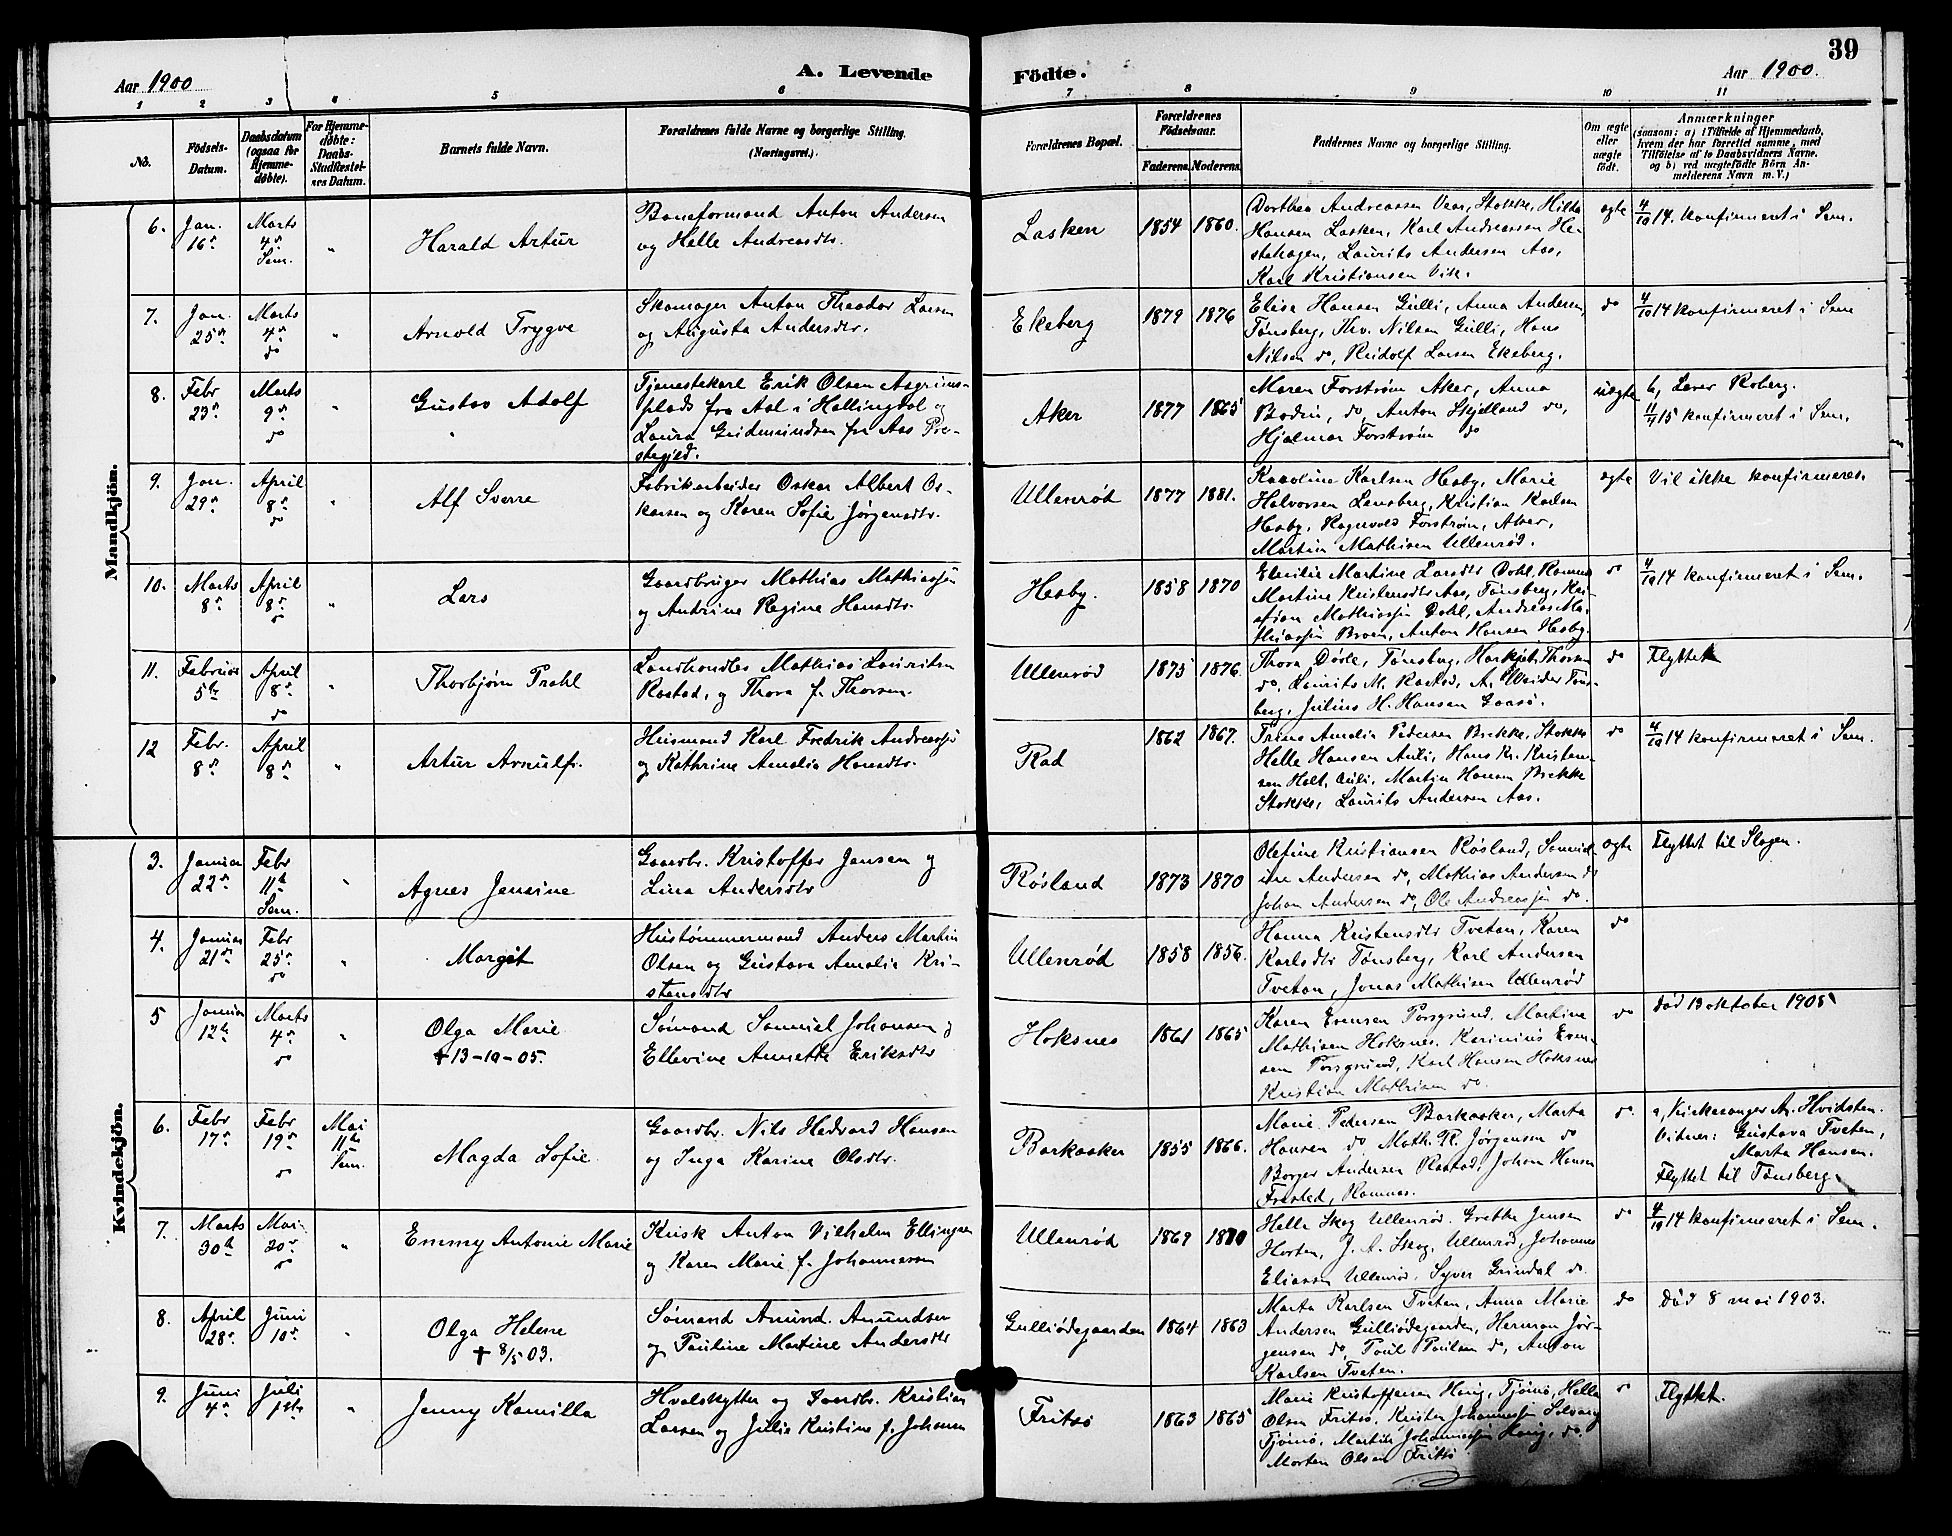 39
Aar 1900
A. Levende
Födte.
Aar 1900.
1 2 3 4 5 6 7 8 9 10 11
No.
Födsels-
Datum.
Daabsdatum
(ogsaa for
Hjemme-
døbte).
For Hjemme-
døbte:
Daabs-
Stadfæstel-
ses Datum.
Barnets fulde Navn.
Forældrenes fulde Navne og borgerlige Stilling.
(Næringsvei.)
Forældrenes Bopæl.
Forældrenes
Födselsaar.
Faderens.
Moderens.
Faddernes Navne og borgerlige Stilling.
Om ægte
eller
uægte
födt.
Anmærkninger
(saasom: a) i Tilfælde af Hjemmedaab,
hvem der har forrettet samme, med
Tilföielse af to Daabsvidners Navne,
og b) ved uægtefödte Börn An-
melderens Navn m. V.)
Mandkjön.
6.
Jan.
16de
Marts
4de
Sem.
"
Harald Artur
Baneformand Anton Andersen
og Helle Andreasdtr.
Lasken
1854
1860.
Dorthea Andreassen Vear, Stokke, Hilda
Hansen Lasken, Karl Andreassen He-
stehagen, Laurits Andersen Aas,
Karl Kristiansen Vik.
ægte
4/10 14. konfirmeret i Sem.
7.
Jan.
25de
Marts
4de
do
"
Arnold Trygve
Skomager Anton Theodor Larsen
og Augusta Andersdtr.
Ekeberg
1879
1876
Elise Hansen Gulli, Anna Andersen,
Tønsberg, Thv. Nilsen Gulli, Hans
Nilsen do, Rudolf Larsen Ekeberg.
do
4/10 14 konfirmeret i Sem
8.
Febr
23de
Marts
9de
do
"
Gustav Adolf
Tjenestekarl Erik Olsen Asgrims-
plads fra Aal i Hallingdal og
Laura Gudmundsen fra Aas Præ-
stegjeld.
Aker
1877
1865
Maren Forstrøm Aker, Anna
Bodin, do, Anton Skjelland do,
Hjalmar Forstrøm do
uægte
b, Lever Roberg.
11/4 15 konfirmeret i Sem.
9.
Jan.
29de
April
8de
do
"
Alf Sverre
Fabrikarbeider Oskar Albert Os-
karsen og Karen Sofie Jørgensdtr.
Ullenrød
1877
1881.
Karoline Karlsen Hesby, Marie
Halvorsen Lensberg, Kristian Karlsen
Hesby, Ragnvald Forstrøm, Aker,
Martin Mathisen Ullenrød.
ægte
Vil ikke konfirmeres.
10.
Marts
8de
April
8de
do
"
Lars
Gaardbruger Mathias Mathiassen
og Andrine Regine Hansdtr.
Hesby.
1858
1870
Emilie Martine Larsdtr Dahl, Ramnes
Martine Kristensdtr Aas, Tønsberg, Kri-
stian Mathiassen Dahl, Andreas Ma-
thiassen Broen, Anton Hansen Hesby.
do
4/10 14 konfirmeret i Sem.
11.
Februar
5te
April
8de
do
"
Thorbjørn Prahl
Landhandler Mathias Lauritsen
Rastad, og Thora f. Thorsen.
Ullenrød
1875
1876.
Thora Dørle, Tønsberg, Thorsen
do, Laurits M. Rastad, A. Weider Tøns-
berg, Julius H. Hansen Gaasø.
do
Flyttet
12
Febr.
8de
April
8de
"
Artur Arnulf.
Husmand Karl Fredrik Andreassen
og Kathrine Amalia Hansdtr.
Rad
1862
1867.
Trine Amalia Pedersen Brekke, Stokke
Helle Hansen Auli, Hans Kr. Kristen-
sen Holt, Auli, Martin Hansen Brekke
Stokke, Laurits Andersen Aas.
do
4/10 14 konfirmeret i Sem.
Kvindekjön.
3.
Januar
22de
Febr
11te
Sem.
"
Agnes Jensine
Gaardbr. Kristoffer Jensen og
Lina Andersdtr
Røsland
1873
1870
Olefine Kristiansen Røsland, Samuel-
ine Andersen do, Mathias Andersen do
Johan Andersen do, Ole Andreassen do.
ægte
Flyttet til Slagen.
4.
Januar
21de
Febr
25de
do
"
Margit
Hustømmermand Anders Martin
Olsen og Gustava Amalia Kri-
stensdtr
Ullenrød
1858
1856.
Hanna Kristensdtr Tveten, Karen
Karlsdtr Tønsberg, Karl Andersen
Tveten, Jonas Mathisen Ullenrød
do
5
Januar
12te
Marts
4de
do
"
Olga Marie
+ 13-10-05.
Sømand Samuel Johansen og
Ellevine Annette Eriksdtr
Hoksnes
1861
1865
Karen Evensen Porsgrund, Martine
Mathisen Hoksnes, Karinius Even-
sen Porsgrund, Karl Hansen Hoksnes
Kristian Mathisen do.
do
død 13 oktober 1905
6.
Febr
17de
Febr
19de
do
Mai
11te
Sem.
Magda Sofie
Gaardbr. Nils Hedvard Hansen
og Inga Karine Olsdtr.
Barkaaker
1855
1866.
Marie Pedersen Barkaaker, Marta
Hansen do, Math. R. Jørgensen do
Borger Andersen Rastad, Johan Hansen
Frested, Ramnes.
do.
a, Kirkesanger A. Hvidsten.
Vidner: Gustava Tveten,
Marta Hansen.
Flyttet til Tønsberg.
7.
Marts
30te
Mai
20de
do
"
Emmy Antonie Marie
Kusk Anton Vilhelm Ellingsen
og Karen Marie f. Johannesen
Ullenrød
1869
1870
Helle Skog Ullenrød, Grethe Jensen
Horten, J. A. Skog, Ullenrød, Johannes
Eliassen Ullenrød, Syver Grindal do.
do
4/10 14 konfirmeret i Sem.
8.
April
28de
Juni
10de
"
Olga Helene
+ 8/5 03.
Sømand Amund Amundsen
og Pauline Martine Andersdtr
Gulliødegaarden
1864
1863
Marta Karlsen Tveten, Anna Marie
Andersen Gulliødegaarden, Herman Jør-
gensen do, Poul Poulsen do, Anton
Karlsen Tveten.
do
død 8 mai 1903.
9.
Juni
4de
Juli
1ste
"
Jenny Kamilla
Hvalskytter og Gaardbr. Kristian
Larsen og Julie Kristine f. Johansen
Fritsø
1863
1865
Marie Kristoffersen Haug, Tjømø, Helle
Olsen Fritsø, Kristen Johannessen Solvang
Tjømø, Martin Johannessen Haug, do.
Morten Olsen Fritsø
do
Flyttet.